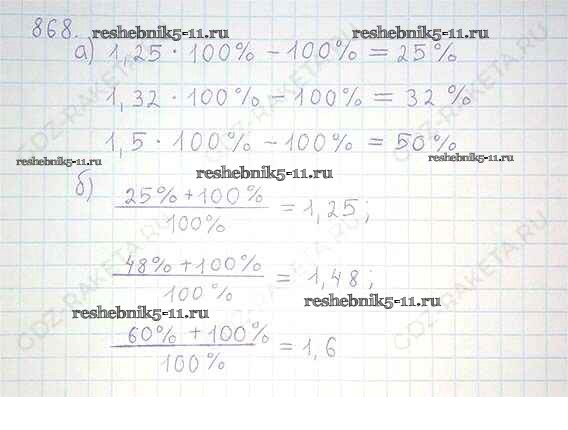 868.
reshebnik5-11.ru
reshebnik5-11.ru
а) 1,25 · 100% − 100% = 25%
1,32 · 100% − 100% = 32%
1,5 · 100% − 100% = 50%
reshebnik5-11.ru
reshebnik5-11.ru
reshebnik5-11.ru
б) 25% + 100%
100%
= 1,25;
48% + 100%
100%
= 1,48;
reshebnik5-11.ru
reshebnik5-11.ru
60% + 100%
100%
= 1,6
GDZ-RAKETA.RU
GDZ-RAKETA.RU
GDZ-RAKETA.RU
GDZ-RAKETA.RU